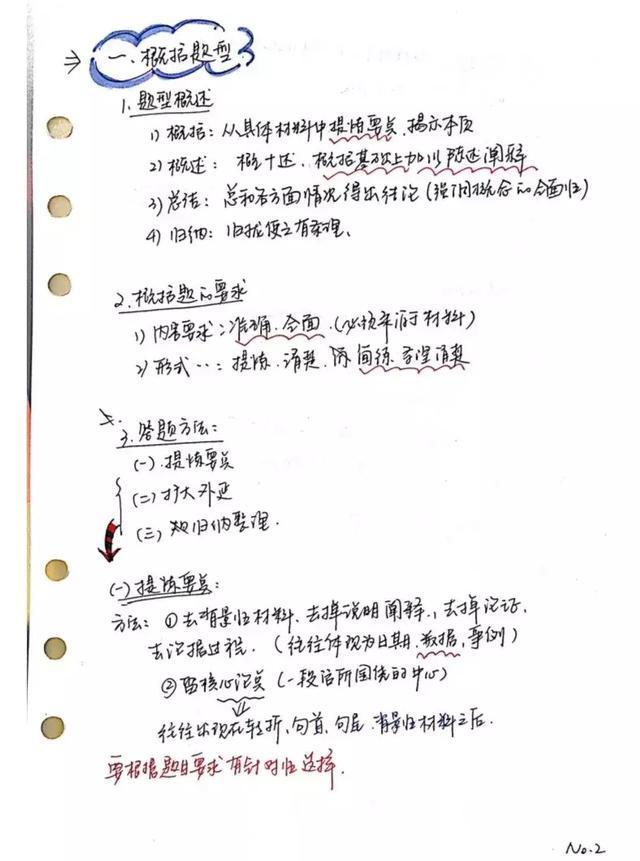 一、概括题型
1. 题型概述
1) 概括: 从具体材料中提炼要点、揭示本质
2) 概述: 概+述、概括基础上加以陈述阐释
3) 总结: 总和各方面情况得出结论 (强调概念的全面性)
4) 归纳: 归拢使之有条理、
2. 概括题的要求
1) 内容要求: 准确、全面、(必须来源于材料)
2) 形式…: 提炼、清楚、简练、条理清楚
3. 答题方法:
(一) 提炼要点
(二) 扩大外延
(三) 归纳整理.
(一) 提炼要点:
方法: ① 去背景性材料、去掉说明阐释、去掉论证、
去论据过程、(往往体现为日期、数据、事例)
② 留核心论点 (一段话所围绕的中心)
往往出现在转折、句首、句尾、背景性材料之后.
要根据题目要求有针对性选择.
No.2